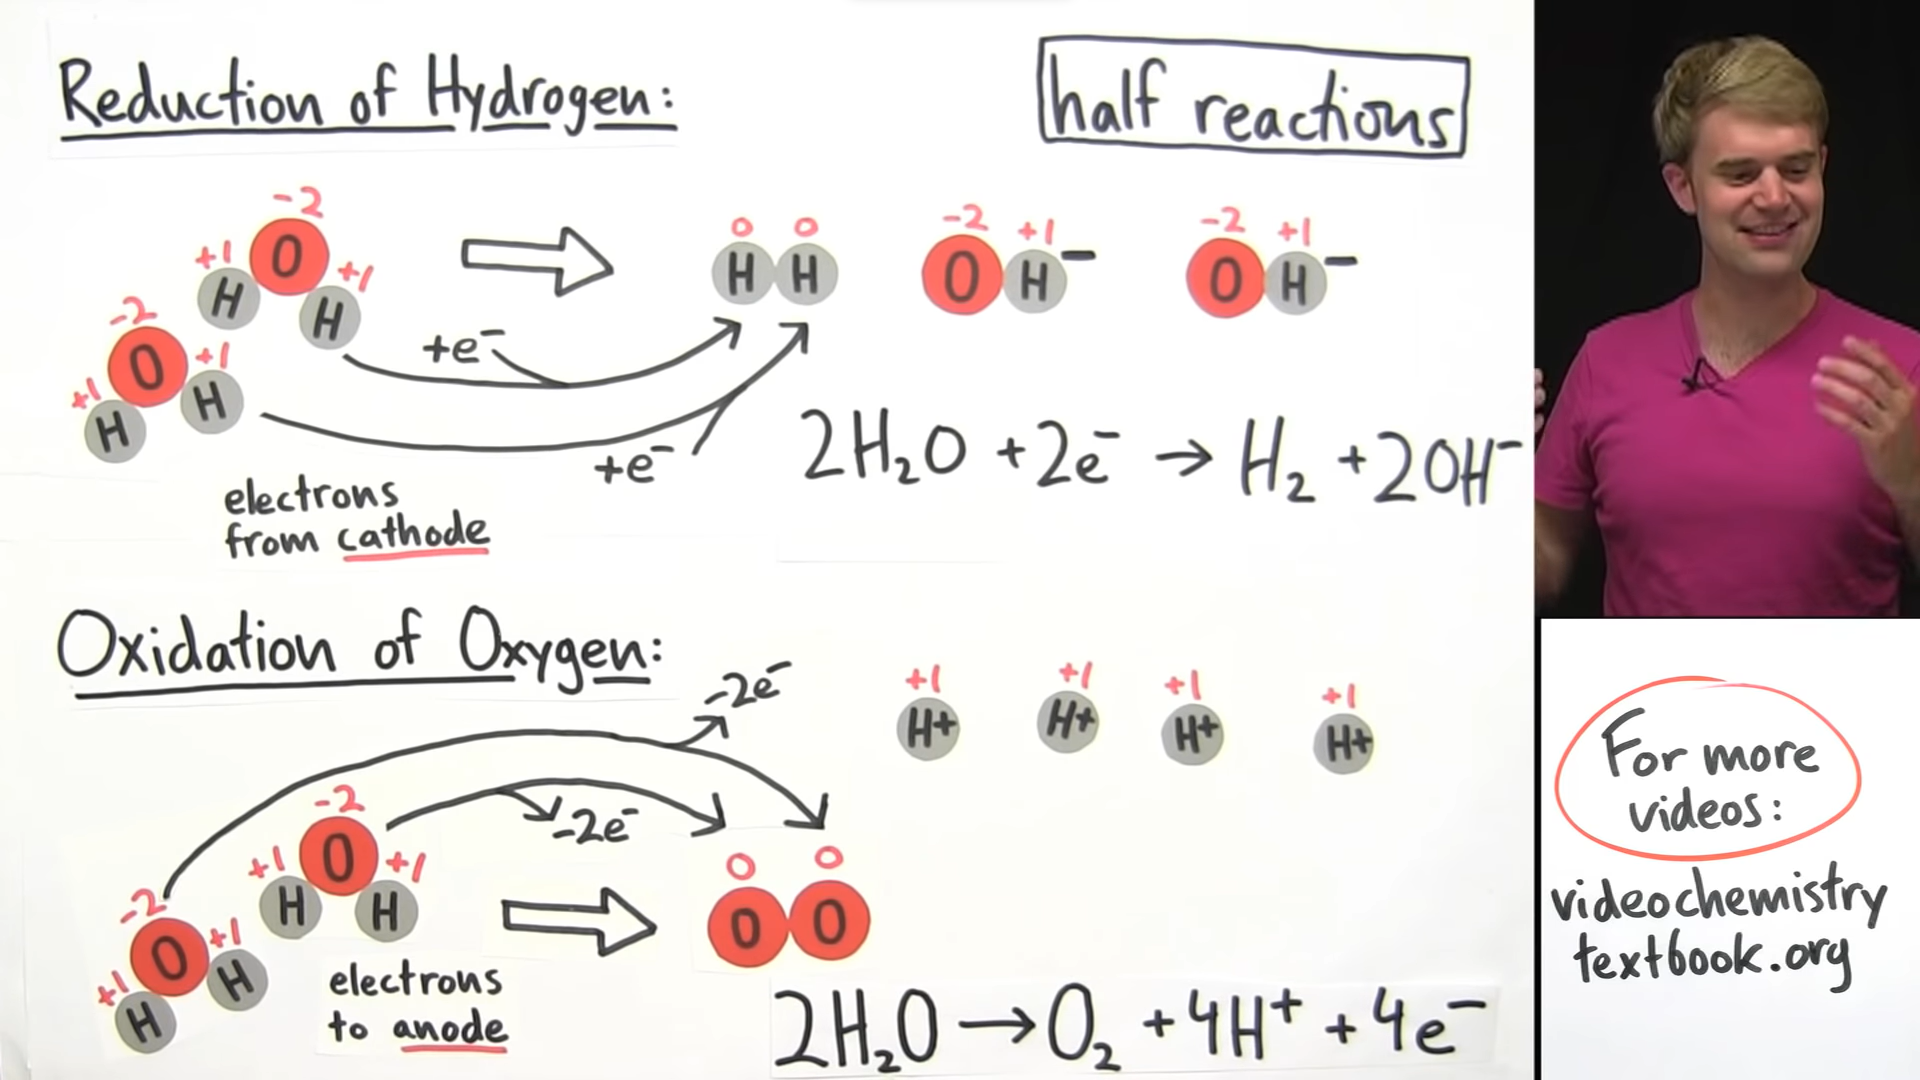 Reduction of Hydrogen:
half reactions
-2
+1 O +1
H H
-2
O +1
+1 H
H
0 0
H H
-2 +1
O H−
-2 +1
O H−
+e−
+e−
2H₂O + 2e− → H₂ + 2OH−
electrons
from cathode
Oxidation of Oxygen:
-2e−
-2e−
+1 +1 +1 +1
H+ H+ H+ H+
-2
+1 O +1
H H
-2
O +1
+1 H
H
0 0
O O
electrons
to anode
2H₂O → O₂ + 4H+ + 4e−
For more
videos:
videochemistry
textbook.org